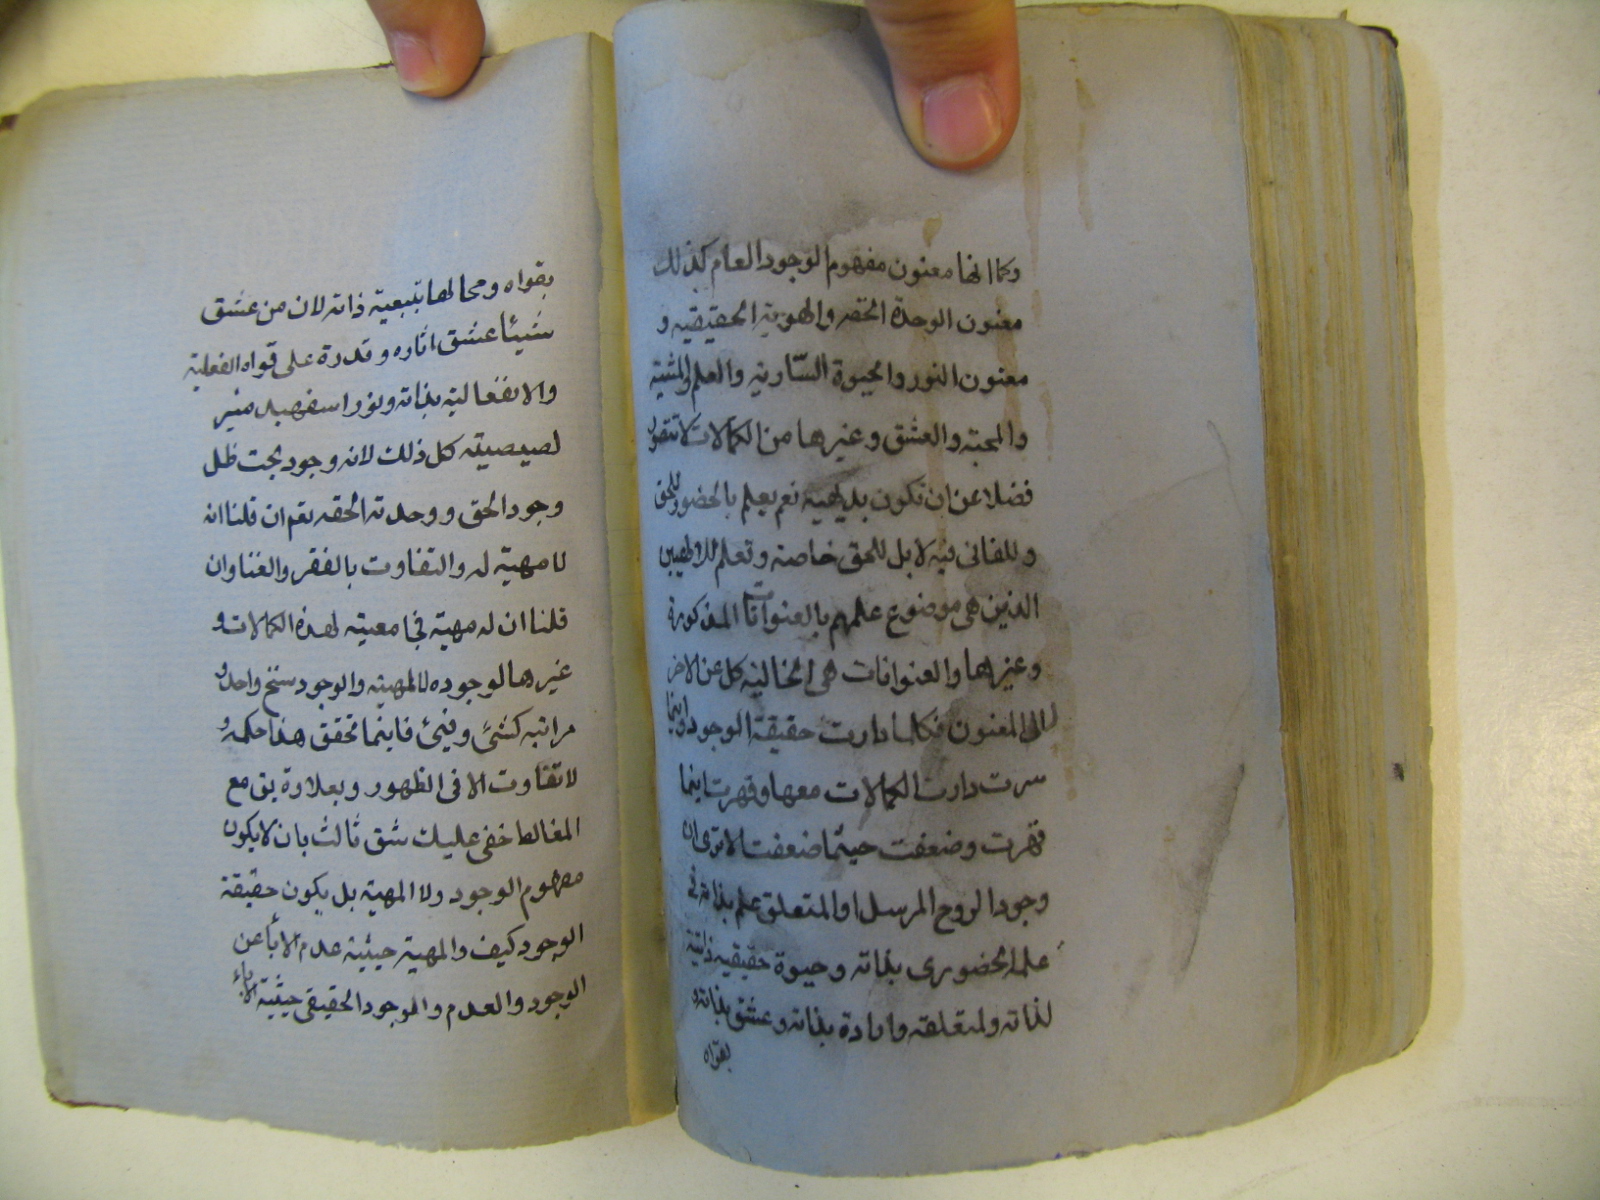 وكما انها معنون مفهوم الوجود العام كذلك
معنون الوحدة الحقه والهوية الحقيقيه و
معنون النور والحيوة السّارية والعلم والمشية
والمحبة والعشق وغيرها من الكمالات لا تتصور
فضلا عن ان تكون بديهيه نعم يعلم بالحضور للحق
وللفانى فيه لا بل للحق خاصة وتعلم للالهيين
الذين هى موضوع علمهم بالعنوانات المذكورة
وغيرها والعنوانات هى الخالية كل عن الاخر
لا المعنون فكلما دارت حقيقة الوجود واينما
سرت دارت الكمالات معها وقهرت اينما
قهرت وضعفت حيثما ضعفت الا ترى ان
وجود الروح المرسل او المتعلق علم بذاته فى
علمه الحضورى بذاته وحيوة حقيقيه ذاتية
لذاته ولمتعلقه وارادة بذاته وعشق بذاته و
بقواه
بقواه ومحالها بتبعية ذاته لان من عشق
شيئا عشق اثاره وقدرة على قواه الفعلية
والانفعالية بذاته ونور اسفهبد منير
لصيصيته كل ذلك لانه وجود بحت ظل
وجود الحق ووحدته الحقه نعم ان قلنا انه
لا مهية له والتفاوت بالفقر والغنا وان
قلنا ان له مهية فجامعيته لهذه الكمالات و
غيرها لوجوده لا لمهيته والوجود سنخ واحد و
مراتبه كشئ وفئ فاينما تحقق هذا حكمه و
لا تفاوت الا فى الظهور وبعلاوة بق مع
المغالط خفى عليك شق ثالث بان لا يكون
مفهوم الوجود ولا المهية بل يكون حقيقة
الوجود كيف والمهية حيثية عدم الاباء عن
الوجود والعدم والوجود الحقيقى حيثية الاباء